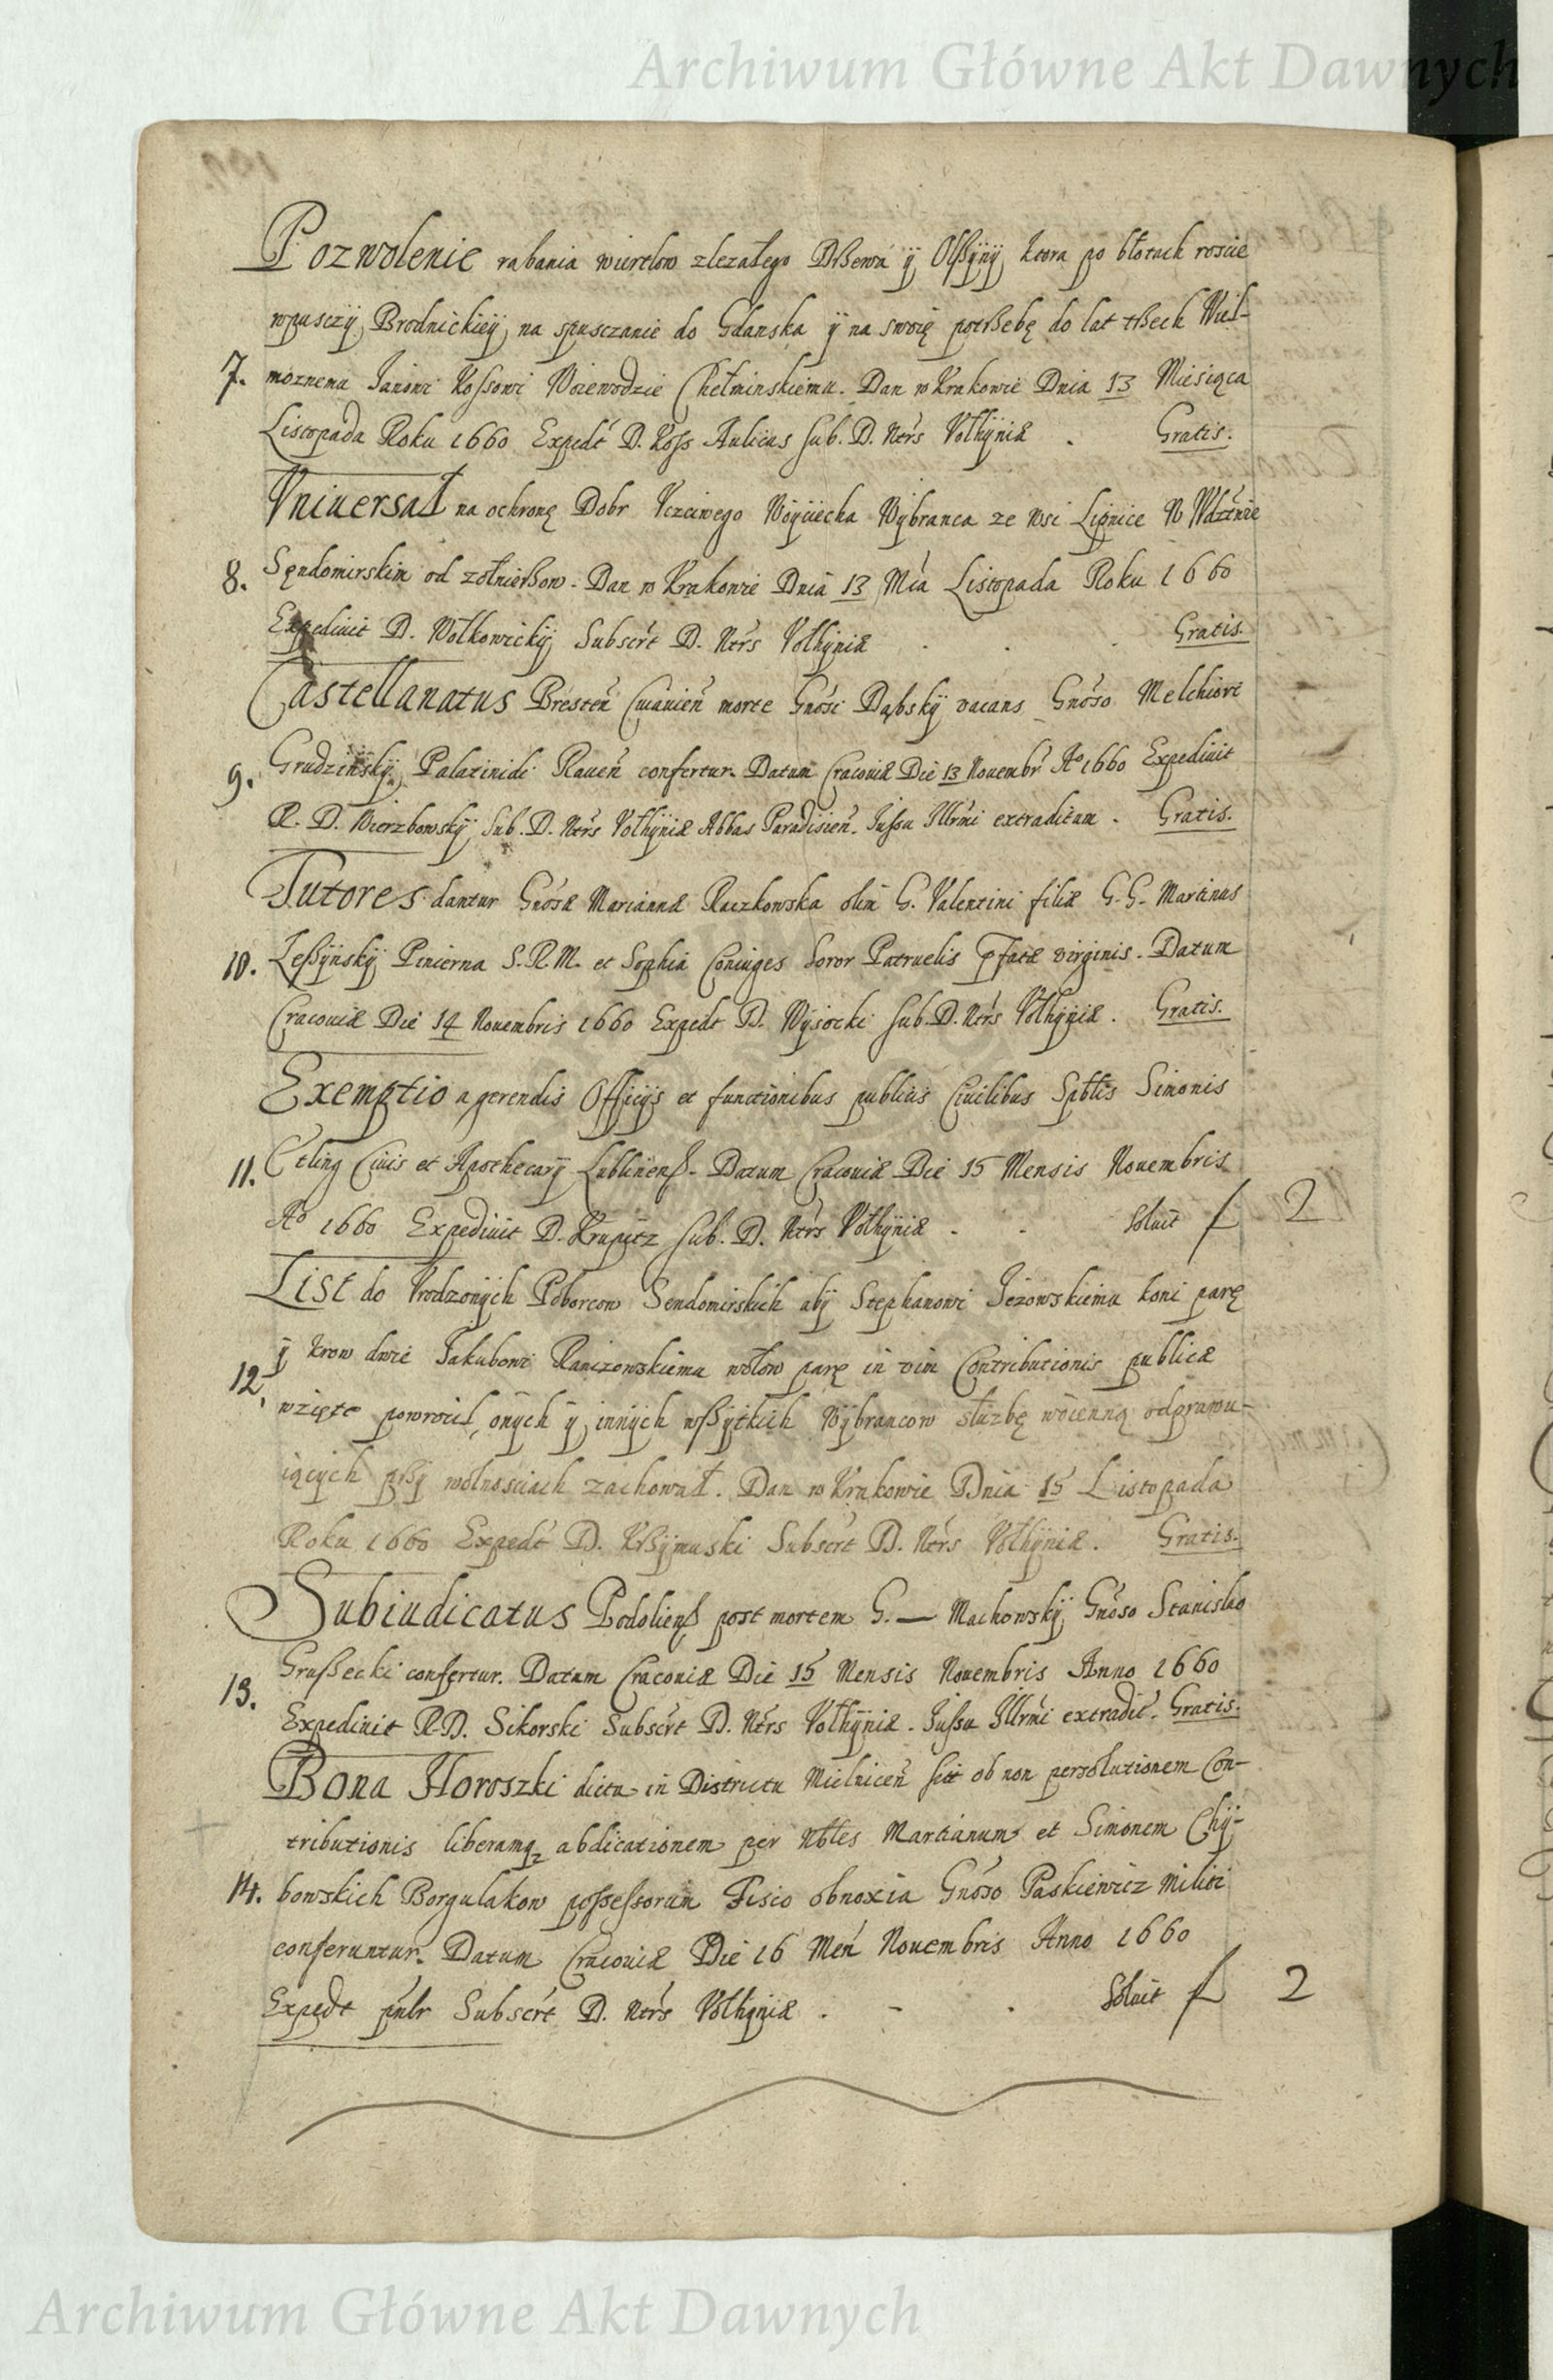 Archiwum Główne Akt Dawnych
Pozwolenie rabania wiertelow zlezałego Drzewa ÿ Olszÿnÿ ktora po błotach roscie
wpusczÿ Brodnickieÿ na spusczanie do Gdanska ÿ na swoię potrzebę do lat trzech Wiel-
7. moznemu Janowi Kossowi Woiewodzie Chełminskiemu. Dan w Krakowie Dnia 13 Miesiąca
Listopada Roku 1660 Expedt D. Koss Aulicus Sub. D. Ntrs Volhÿniæ . Gratis.
Vniuersał na ochronę Dobr Vczciwego Woÿciecha Wÿbranca ze wsi Lipnice W Wdztwie
8. Sęndomirskim od zołnierzow. Dan w Krakowie Dnia 13 Mca Listopada Roku 1660
Expediuit D. Wolkowickÿ Subscrt D. Ntrs Volhÿniæ . . . Gratis.
Castellanatus Bresten Cuiauien morte Gnosi Dąbskÿ vacans Gnoso Melchiori
9. Grudzinskÿ Palatinidi Rauen confertur. Datum Cracouiæ Die 13 Nouembr Ao 1660 Expediuit
R. D. Wierzbowskÿ Sub. D. Ntrs Volhÿniæ Abbas Paradisien. Jussu Illrmi extraditum . Gratis.
Tutores dantur Gnosæ Mariannæ Raczkowska olim G. Valentini filiæ G. G. Martinus
10. Leszÿnskÿ Pincerna S. R. M. et Sophia Coniuges Soror Patruelis pfatæ virginis. Datum
Cracouiæ Die 14 Nouembris 1660 Expedt D. Wÿsocki Sub. D. Ntrs Volhÿniæ . Gratis.
Exemptio a gerendis Officÿs et functionibus publicis Ciuilibus Spblis Simonis
11. Etling Ciuis et Apothecarÿ Lublinens. Datum Cracouiæ Die 15 Mensis Nouembris
Ao 1660 Expediuit D. Krupetz Sub. D. Ntrs Volhÿniæ . . Soluit f 2
List do Vrodzonÿch Poborcow Sendomirskich abÿ Stephanowi Jezowskiemu koni parę
ÿ krow dwie Jakubowi Ranizowskiemu wołow parę in vim Contributionis publicæ
12. wzięte powrocił, onÿch ÿ innÿch wszÿtkich Wÿbrancow słuzbę woienną odprawu-
iącÿch przÿ wolnosciach zachował. Dan w Krakowie Dnia 15 Listopada
Roku 1660 Expedt D. Krzÿmuski Subscrt D. Ntrs Volhÿniæ . Gratis.
Subiudicatus Podoliens post mortem G. — Machowskÿ Gnoso Stanislao
13. Gruszecki confertur. Datum Cracouiæ Die 15 Mensis Nouembris Anno 1660
Expediuit R. D. Sikorski Subscrt D. Ntrs Volhÿniæ . Jussu Illrmi extradit. Gratis.
Bona Horoszki dicta in Districtu Mielnicen sita ob non persolutionem Con-
tributionis liberamq abdicationem per Nbles Martianum et Simonem Chÿ-
14. bowskich Borgulakow possessorum Fisco obnoxia Gnoso Paskiewicz Militi
conferuntur. Datum Cracouiæ Die 16 Men Nouembris Anno 1660
Expedt Subscrt D. Ntrs Volhÿniæ . - . Soluit f 2
Archiwum Główne Akt Dawnych